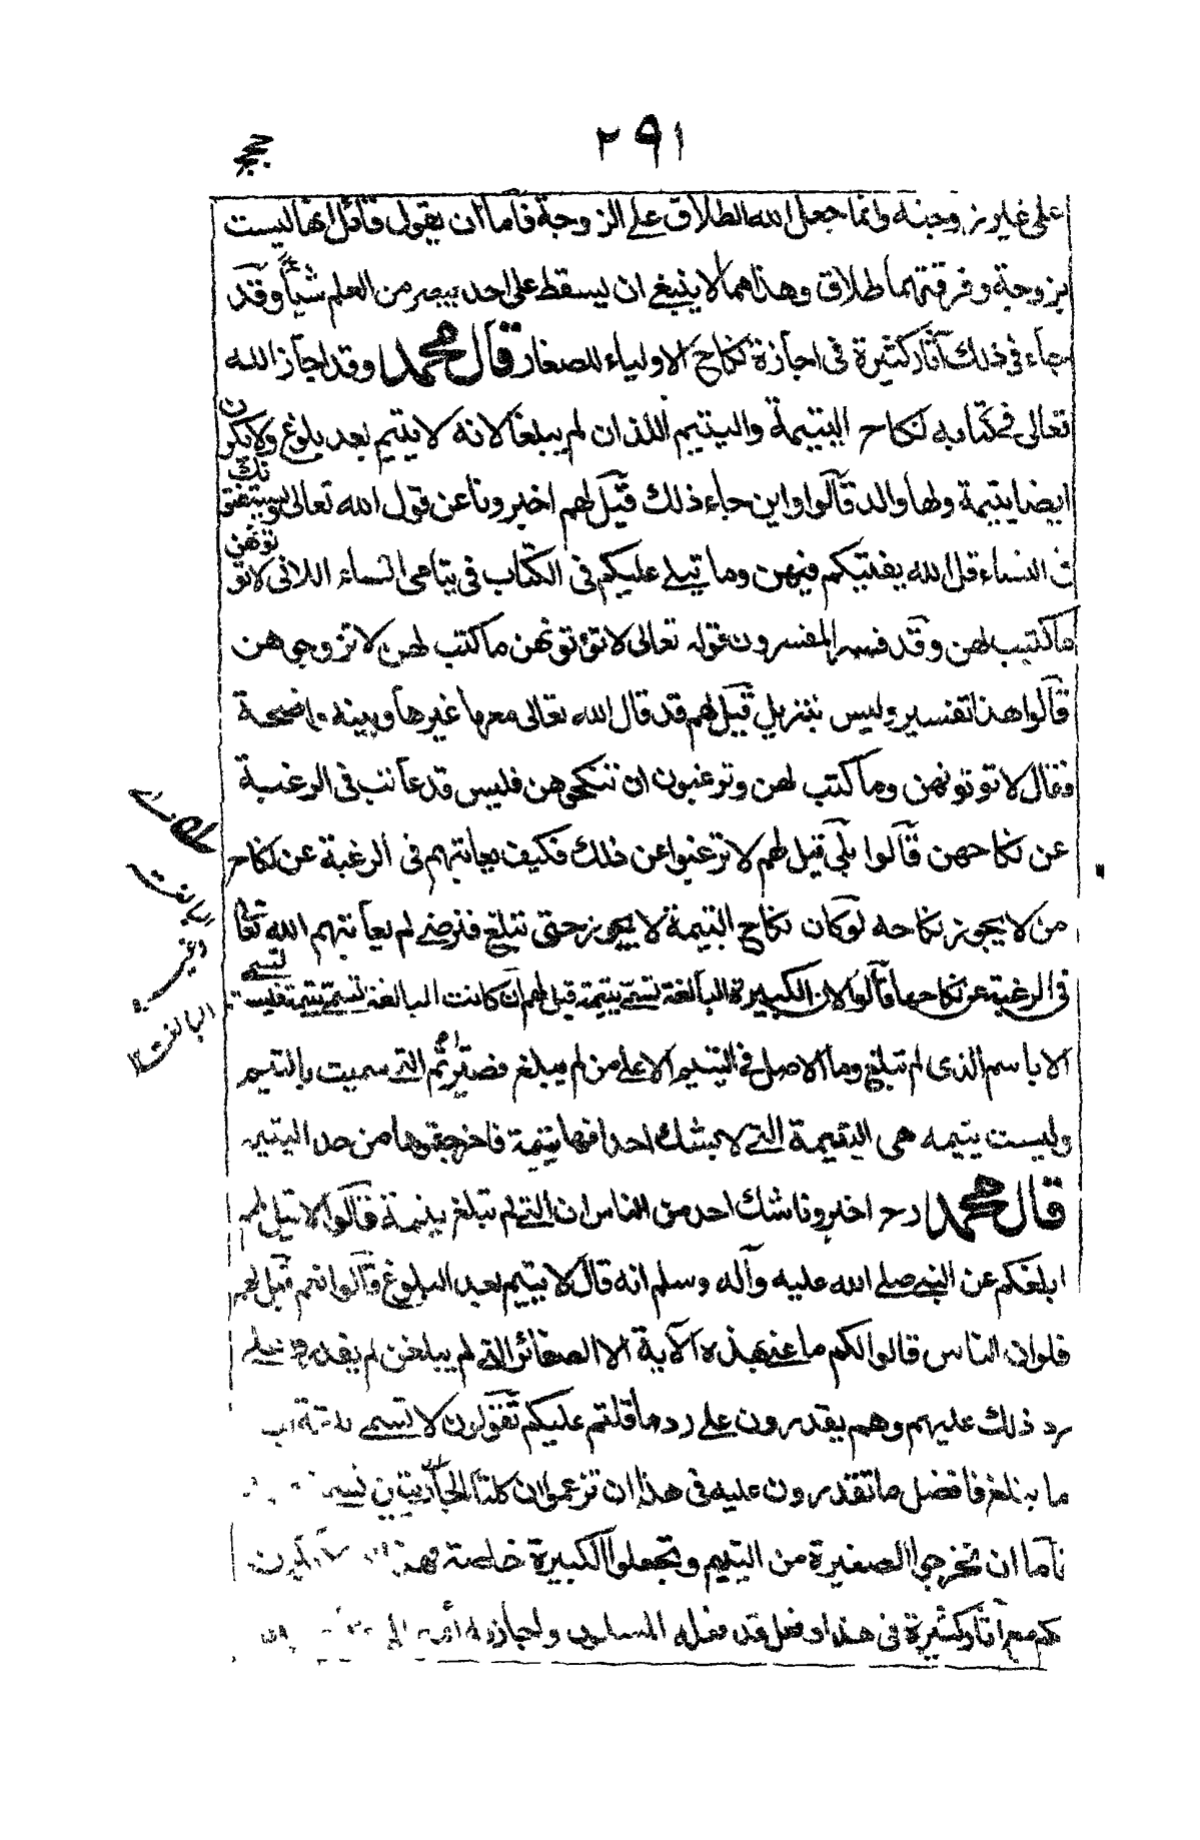 ٢٩١
حجج
على غير زوجته وانما جعل الله الطلاق على الزوجة فاما ان يقول قائل انها ليست
بزوجة وفرقتهما طلاق وهذا مما لا ينبغي ان يسقط على احد يبصر من العلم شيأ وقد
جاء في ذلك آثار كثيرة في اجازة نكاح الاولياء للصغار قال محمد وقد اجاز الله
تعالى في كتابه نكاح اليتيمة واليتيم اللذان لم يبلغا لانه لا يتيم بعد بلوغ ولا يكون
ايضا يتيمة ولها والد قالوا واين جاء ذلك قيل لهم اخبرونا عن قول الله تعالى ويستفتونك
في النساء قل الله يفتيكم فيهن وما يتلى عليكم في الكتاب في يتامى النساء اللاتى لا تؤتونهن
ما كتب لهن وقد فسر المفسرون قوله تعالى لا تؤتونهن ما كتب لهن لا تزوجوهن
قالوا هذا تفسير وليس بتنزيل قيل لهم قد قال الله تعالى معها غيرها وبينه واضحة
فقال لا تؤتونهن وما كتب لهن وترغبون ان تنكحوهن فليس قد عاتب في الرغبة
عن نكاحهن قالوا بلى قيل لهم لا ترغبوا عن ذلك فكيف يعاتبهم في الرغبة عن نكاح
من لا يجوز نكاحه لو كان نكاح اليتيمة لا يجوز حتى تبلغ فترضى لم يعاتبهم الله تعالى
في الرغبة عن نكاحها قالوا لان الكبيرة البالغة تسمى يتيمة قيل لهم ان كانت البالغة تسمى يتيمة فليست تسمى
الا باسم الذى لم تبلغ وما الاصل في اليتيم الا على من لم يبلغ فصيرتم التى سميت باليتيم
وليست يتيمه هى اليتيمة التى لا يشك احد انها يتيمة فاخرجتموها من حد اليتيم
قال محمد رح اخبرونا شك احد من الناس ان التى لم تبلغ يتيمة قالوا لا قيل لهم
ابلغكم عن النبى صلى الله عليه وآله وسلم انه قال لا يتيم بعد البلوغ قالوا نعم قيل لهم
فلو ان الناس قالوا لكم ما عنى بهذه الآية الا الصغائر التى لم يبلغن لم يقدروا على
رد ذلك عليهم وهم يقدرون على رد ما قلتم عليكم تقولون لا تسمى يتيمة
ما بلغ فافضل ما تقدرون عليه في هذا ان تزعموا ان كلتا الجاريتين
فاما ان تخرجوا الصغيرة من اليتيم وتجعلوا الكبيرة خاصة
مع آثار كثيرة في هذا وفعل قد فعله المسلمون واجازه